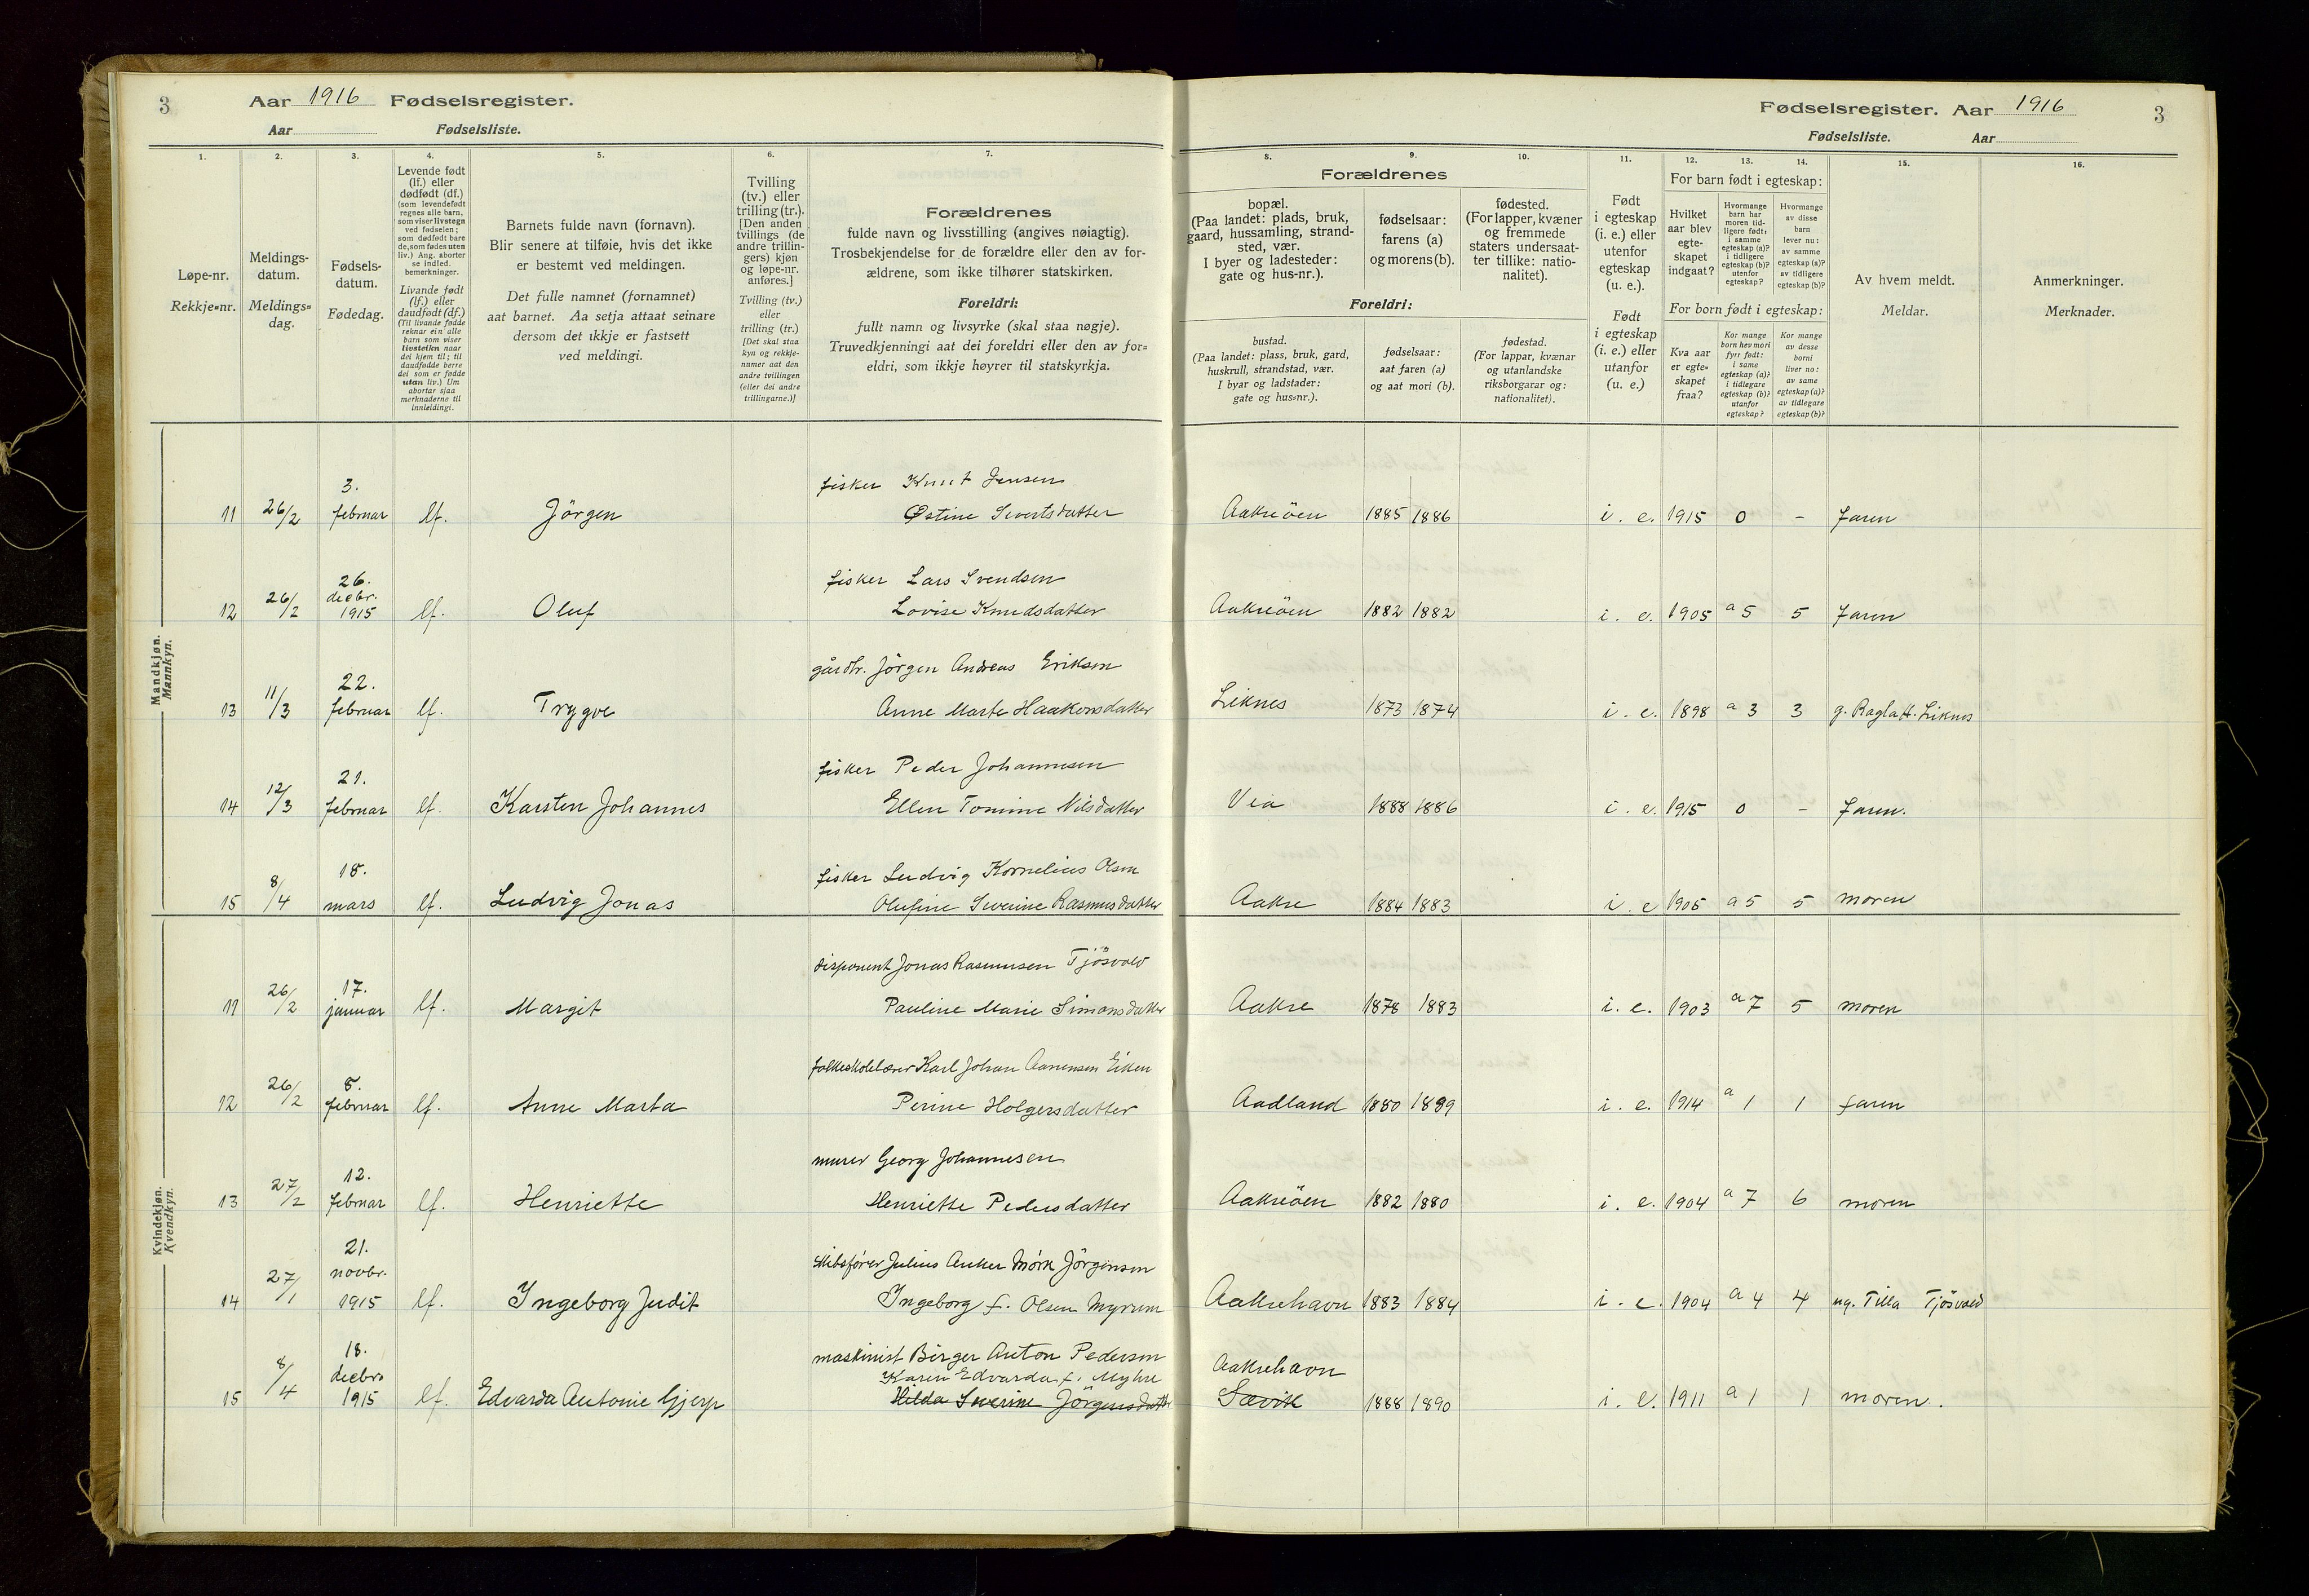 3
Aar 1916 Fødselsregister.
Aar Fødselsliste.
1.
2.
3.
4.
5.
6.
7.
Løpe-nr.
Rekkje=nr.
Meldings-
datum.
Meldings=
dag.
Fødsels-
datum.
Fødedag.
Levende født
(lf.) eller
dødfødt (df.)
(som levendefødt
regnes alle barn,
som viser livstegn
ved fødselen;
som dødfødt bare
de, som fødes uten
liv.) Ang. aborter
se indled.
bemerkninger.
Livande født
(lf.) eller
daudfødt (df.)
(Til livande fødde
reknar ein alle
barn som viser
livsteikn naar
dei kjem til; til
daudfødde berre
dei som er fødde
utan liv.) Um
abortar sjaa
merknaderne til
innleidingi.
Barnets fulde navn (fornavn).
Blir senere at tilføie, hvis det ikke
er bestemt ved meldingen.
Det fulle namnet (fornamnet)
aat barnet. Aa setja attaat seinare
dersom det ikkje er fastsett
ved meldingi.
Tvilling
(tv.) eller
trilling (tr.).
[Den anden
tvillings (de
andre trillin-
gers) kjøn
og løpe-nr.
anføres.]
Tvilling (tv.)
eller
trilling (tr.)
[Det skal staa
kyn og rekkje-
numer aat den
andre tvillingen
(eller dei andre
trillingarne.)]
Forældrenes
fulde navn og livsstilling (angives nøiagtig).
Trosbekjendelse for de forældre eller den av for-
ældrene, som ikke tilhører statskirken.
Foreldri:
fullt namn og livsyrke (skal staa nøgje).
Truvedkjenningi aat dei foreldri eller den av for=
eldri, som ikkje høyrer til statskyrkja.
Fødselsregister. Aar 1916
3
Fødselsliste. Aar
8.
9.
10.
11.
12.
13.
14.
15.
16.
Forældrenes
bopæl.
(Paa landet: plads, bruk,
gaard, hussamling, strand-
sted, vær.
I byer og ladesteder:
gate og hus-nr.).
fødselsaar:
farens (a)
og morens (b).
fødested.
(For lapper, kvæner
og fremmede
staters undersaat-
ter tillike: natio-
nalitet).
Foreldri:
bustad.
(Paa landet: plass, bruk, gard,
huskrull, strandstad, vær.
I byar og ladstader:
gate og hus=nr.).
fødselsaar:
aat faren (a)
og aat mori (b).
fødestad.
(For lappar, kvænar
og utanlandske
riksborgarar og:
nationalitet).
Født
i egteskap
(i. e.) eller
utenfor
egteskap
(u. e.).
Født
i egteskap
(i. e.) eller
utanfor
(u. e.)
For barn født i egteskap:
Hvilket
aar blev
egte-
skapet
indgaat?
Hvormange
barn har
moren tid-
ligere født:
i samme
egteskap (a)?
i tidligere
egteskap (b)?
utenfor
egteskap?
Hvormange
av disse
barn
lever nu:
av samme
egteskap (a)?
av tidligere
egteskap (b)?
For born født i egteskap:
Kva aar
er egte=
skapet
fraa?
Kor mange
born hev mori
fyrr født:
i same
egteskap (a)?
i tidlegare
egteskap (b)?
utanfor
egteskap?
Kor mange
av desse
borni
liver no:
av same
egteskap (a)?
av tidlegare
egteskap (b)?
Av hvem meldt.
Meldar.
Anmerkninger.
Merknader.
Mandkjøn.
Mannkyn.
3.
fisker Knut Jensen
11 26/2 februar lf. Jörgen Østine Sivertsdatter Aakreöen 1885 1886 i. e. 1915 0 - Faren
26.
decbr.
fisker Lars Svendsen
12 26/2 1915 lf. Oluf Lovise Knudsdatter Aakreöen 1882 1882 i. e. 1905 a 5 5 Faren
22.
gårdbr. Jörgen Andreas Eriksen
13 11/3 februar lf. Trygve Anne Marte Haakonsdatter Liknes 1873 1874 i. e. 1898 a 3 3 g. Liknes
21.
fisker Peder Johannesen
14 12/3 februar lf. Karsten Johannes Ellen Tomine Nilsdatter Vea 1888 1886 i. e. 1915 0 - Faren.
18.
fisker Ludvig Kornelius Olsen
15 8/4 mars lf. Ludvig Jonas Olufine Severine Rasmusdatter Aakre 1884 1883 i. e 1905 a 5 5 moren
Kvindekjøn.
Kvendkyn.
17.
disponent Jonas Rasmussen Tjösvold
11 26/2 januar lf. Margit Pauline Marie Simonsdatter Aakre 1878 1883 i. e. 1903 a 7 5 moren
8.
folkeskolelærer Karl Johan Aanensen Eiken
12 26/2 februar lf. Anne Marta Perine Holgersdatter Aadland 1880 1889 i. e. 1914 a 1 1 faren
12.
murer Georg Johannesen
13 27/2 februar lf. Henriette Henriette Pedersdatter Aakreöen 1882 1880 i. e. 1904 a 7 6 moren
21.
novbr.
skibsfører Julius Anker Mörk Jörgensen
14 27/1 1915 lf. Ingeborg Judit Ingeborg f. Olsen Myrum Aakrehavn 1883 1884 i. e. 1904 a 4 4 ug. Tilla Tjösvold
18.
decbr
maskinist Birger Anton Pedersen Aakrehavn
Karen Edvarda f. Myhre
15 8/4 1915 lf. Edvarda Antonie Gjerp Hilda Severine Jörgensdatter Sævik 1888 1890 i. e. 1911 a 1 1 moren.